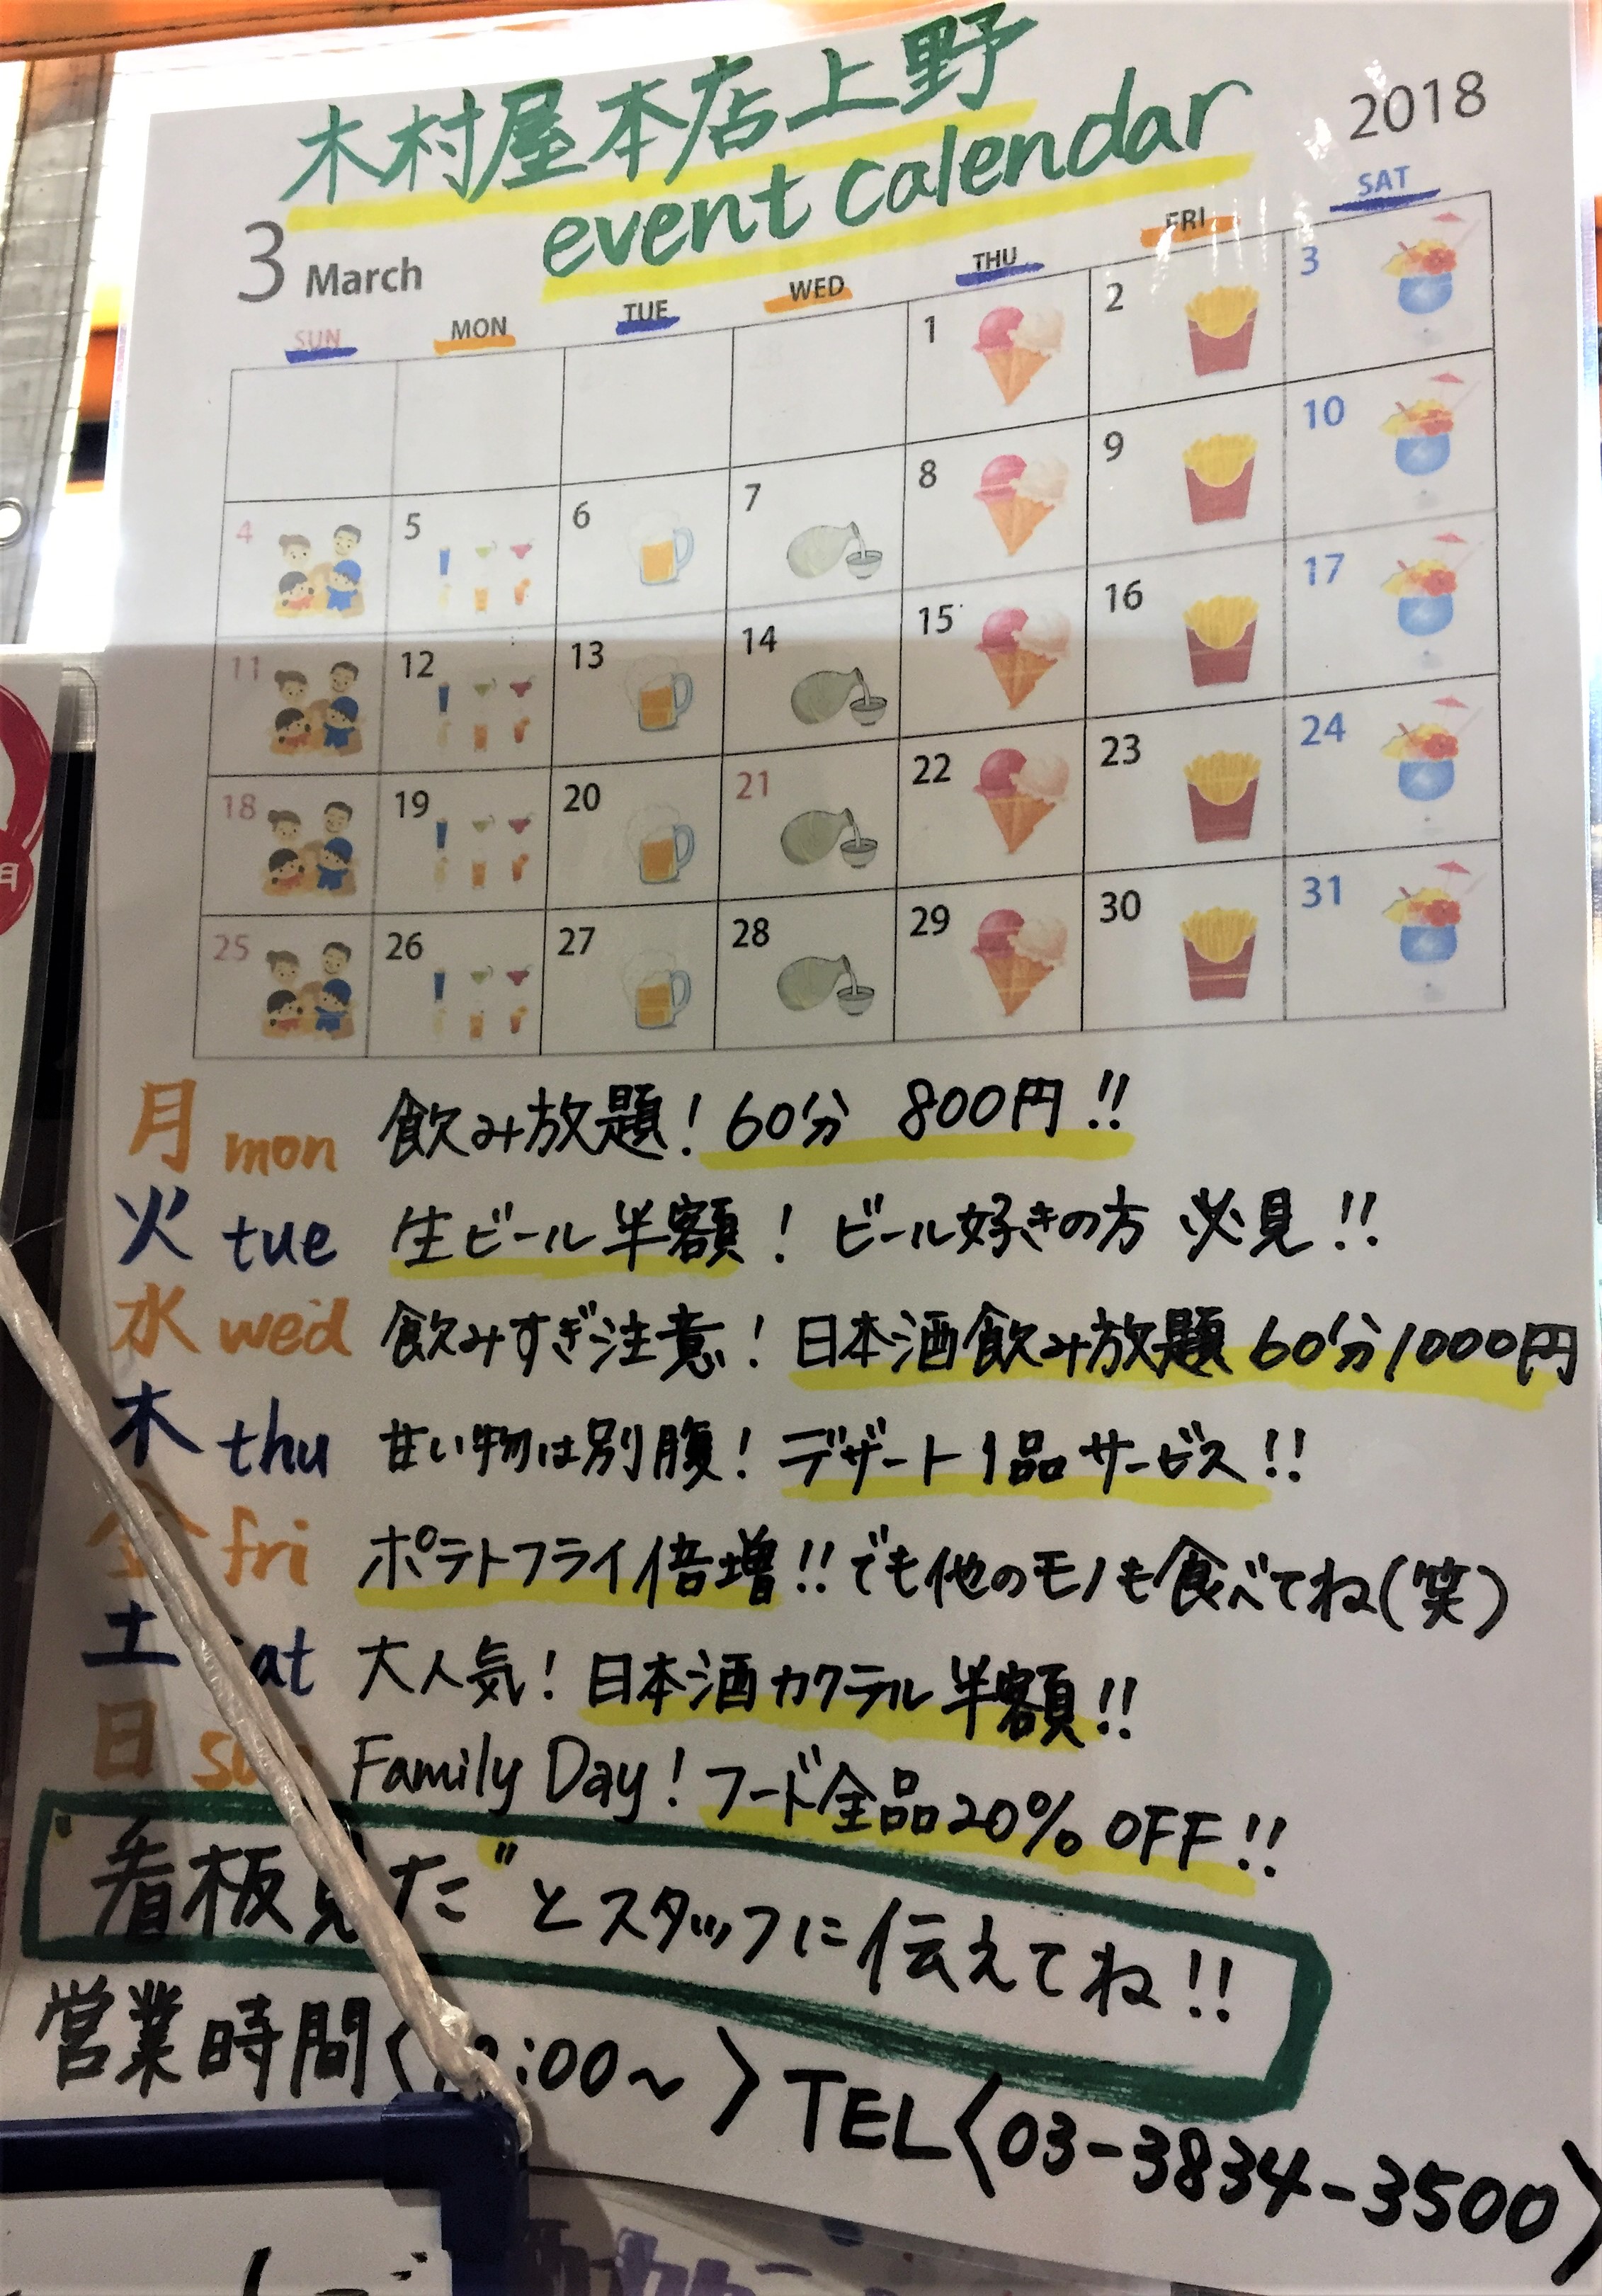 木村屋本店上野
event calendar
2018
3 March
SUN MON TUE WED THU FRI SAT
1 2 3
4 5 6 7 8 9 10
11 12 13 14 15 16 17
18 19 20 21 22 23 24
25 26 27 28 29 30 31
月 mon 飲み放題! 60分 800円!!
火 tue 生ビール半額! ビール好きの方 必見!!
水 wed 飲みすぎ注意! 日本酒飲み放題 60分1000円
木 thu 甘い物は別腹! デザート1品サービス!!
金 fri ポテトフライ倍増!! でも他のモノも食べてね(笑)
土 sat 大人気! 日本酒カクテル半額!!
日 sun Family Day! フード全品20% OFF!!
"看板見た"とスタッフに伝えてね!!
営業時間〈 :00〜 〉 TEL〈03-3834-3500〉